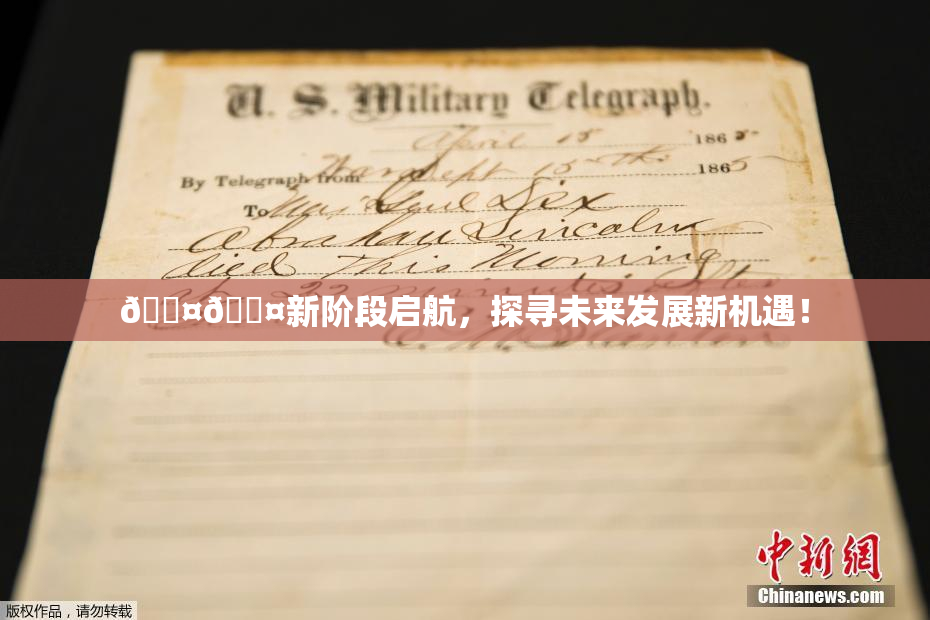 U. S. Military Telegraph.
April 15 1865
By Telegraph from War Dept 15th 1865
To Maj Genl Dix
Abraham Lincoln
died This Morning
at 22 minutes after
ð¤ð¤新阶段启航，探寻未来发展新机遇！
中新网
Chinanews.com
版权作品，请勿转载